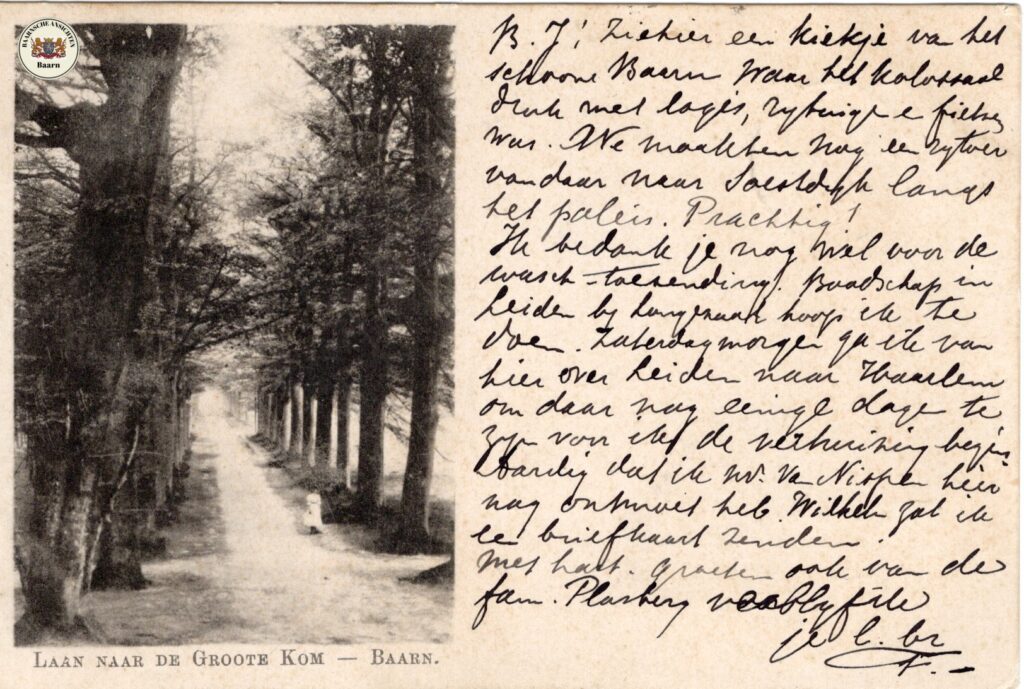 BAARNSCHE ANSICHTEN
Baarn
B. J! Ziehier een kiekje van het
schoone Baarn waar het kolossaal
druk met logés, rytuigen e fietsen
was. We maakten nog een rytoer
vandaar naar Soestdyk langs
het paleis. Prachtig!
Ik bedank je nog wel voor de
wasch-toezending. Boodschap in
Leiden by Langezaar hoop ik te
doen. Zaterdagmorgen ga ik van
hier over Leiden naar Haarlem
om daar nog eenige dagen te
zyn voor ik de verhuizing begin
Aardig dat ik Van Nispen hier
nog ontmoet heb. Willem zal ik
een briefkaart zenden.
Met hart. groeten ook van de
fam. Plasberg verblyf ik
je l. br
F.-
LAAN NAAR DE GROOTE KOM — BAARN.